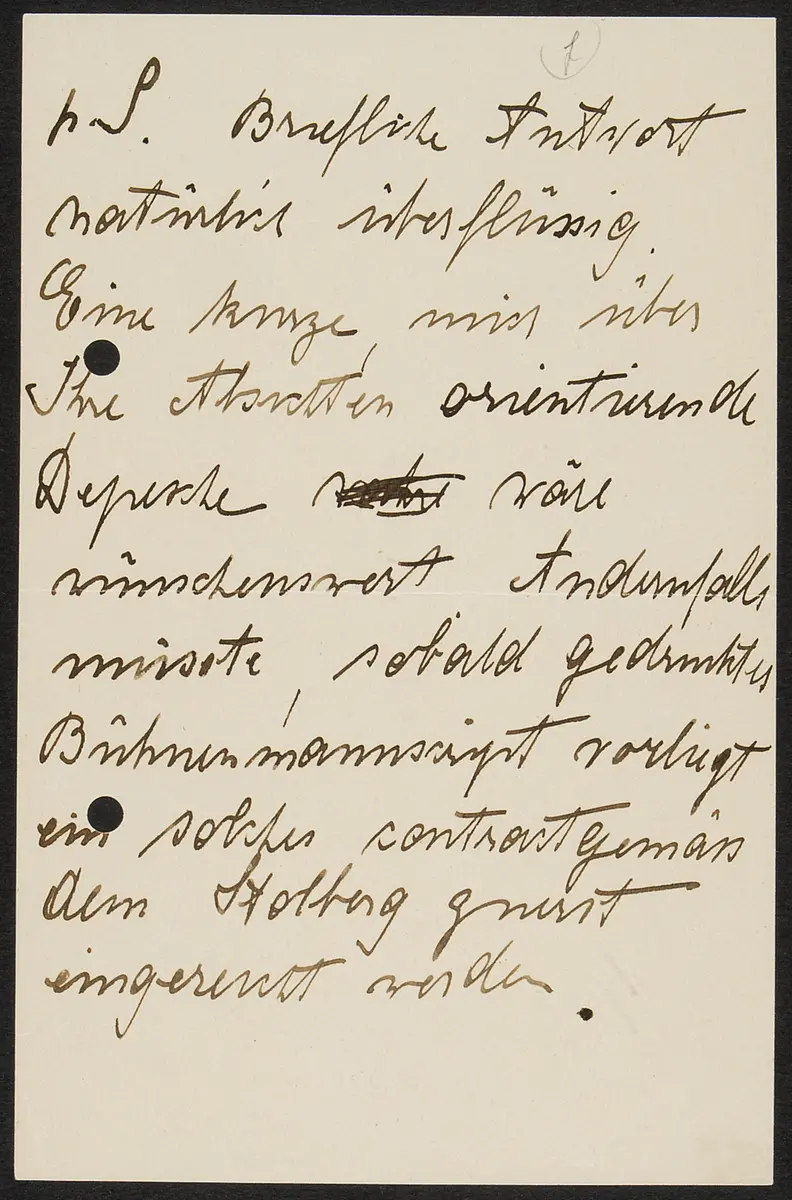 p.S. Briefliche Antwort
natürlich überflüssig.
Eine kurze, mich über
Ihre Absichten orientierende
Depesche wäre
wünschenswert Andernfalls
müsste, sobald gedrucktes
Bühnenmanuscript vorliegt
ein solches contractgemäss
dem Stolberg zuerst
eingereicht werden.